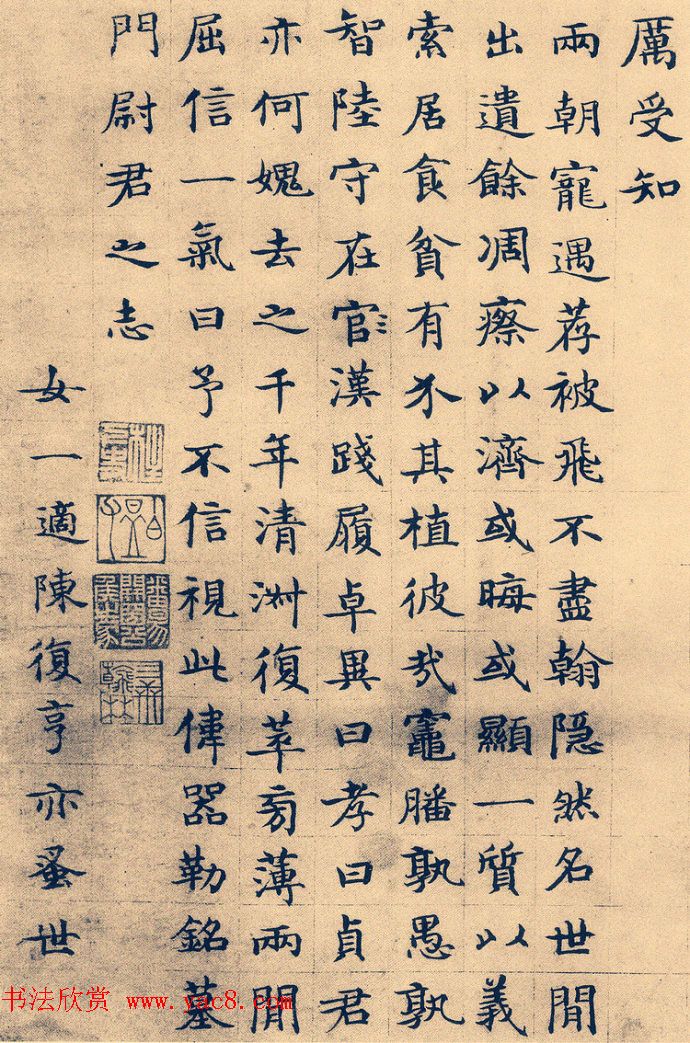 厲受知
兩朝寵遇荐被飛不盡翰隐然名世閒
出遺餘凋瘵以濟或晦或顯一質以義
索居食貧有不其植彼我竈膰孰愚孰
智陸守在官漢踐履卓異曰孝曰貞君
亦何媿去之千年清洲復萃旁薄兩閒
屈信一氣曰予不信視此偉器勒銘墓
門尉君之志
女一適陳復亨亦蚤世
书法欣赏 www.yac8.com